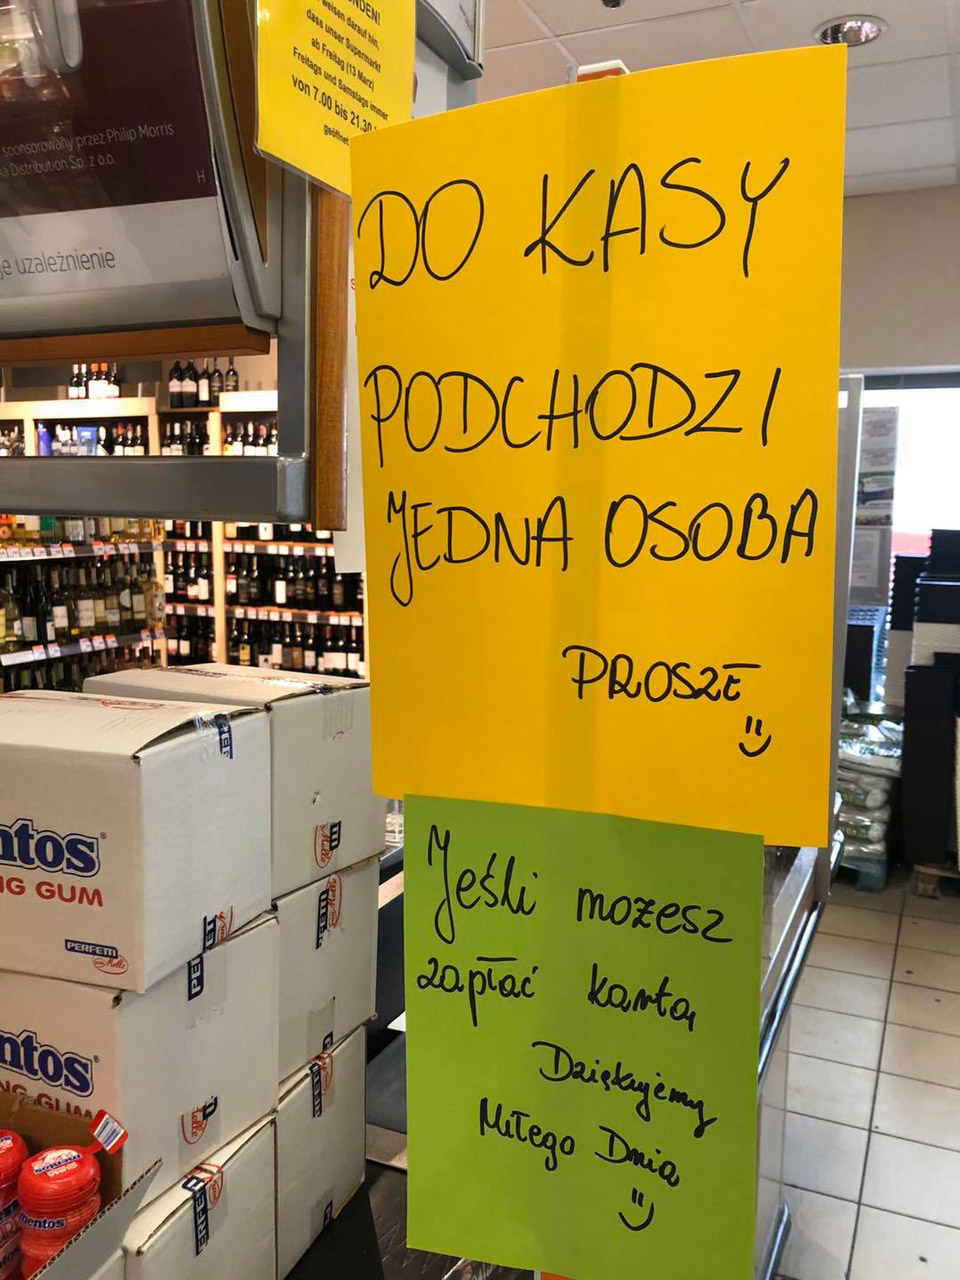 weisen darauf hin,
dass unser Supermarkt
ab Freitag (13 März)
Freitags und Samstags immer
von 7.00 bis 21.30
geöffnet
sponsorowany przez Philip Morris
Distribution Sp. z o.o.
H
uzależnienie
DO KASY
PODCHODZI
JEDNA OSOBA
PROSZĘ
Jeśli możesz
zapłać kartą
Dziękujemy
Miłego Dnia
ntos
NG GUM
PERFETTI
van Melle
ntos
NG GUM
mentos